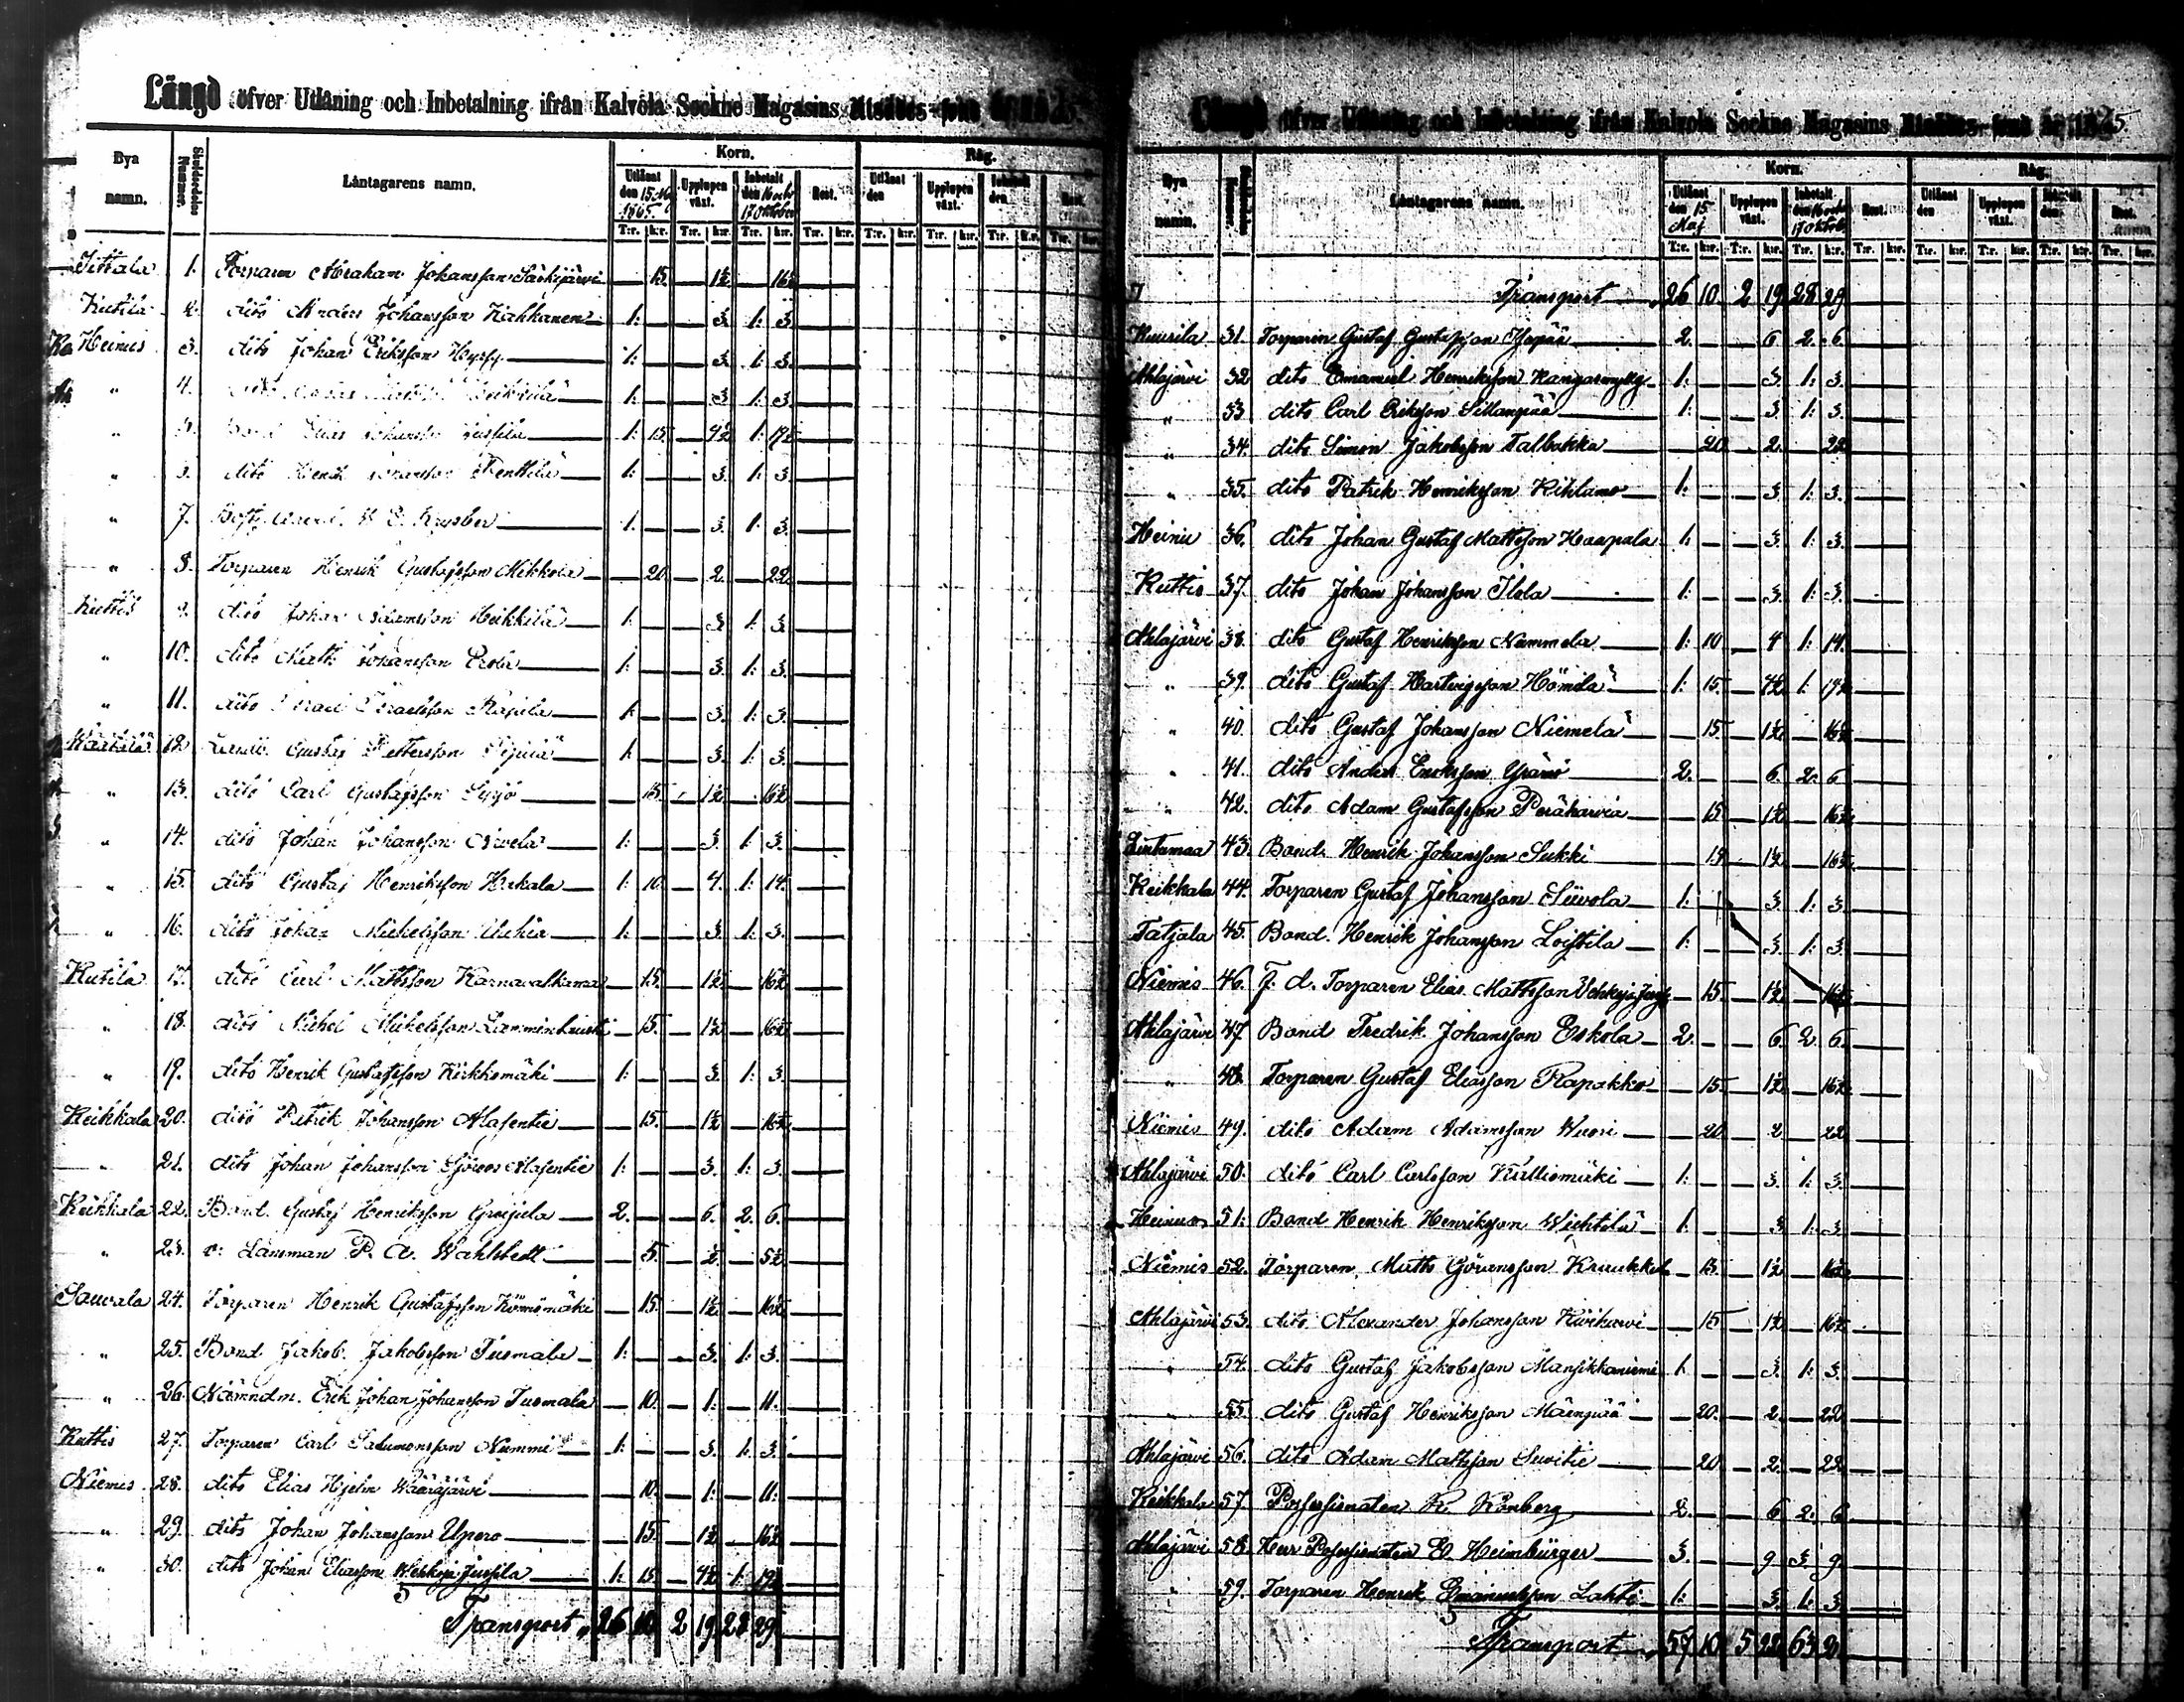 Längd öfver Utlåning och Inbetalning ifrån Kalvola Sockne Magasins
Bya namn. Skuldsedelns Nummer. Låntagarens namn. Korn. Råg.
Utlånt den 15 Maj 1865. Upplupen växt. Inbetalt den 16 och 17 Oktober Rest. Utlånt den Upplupen växt. Inbetalt den Rest.
T:r. k:r. T:r. k:r. T:r. k:r. T:r. k:r. T:r. k:r. T:r. k:r. T:r. k:r. T:r. k:r.
Iittala 1. Torparen Abraham Johansson Särkijärvi 15. 1½ 16½
Kutila 2. dito Anders Johansson Kahkanen 1: 3. 1: 3.
Heinus 3. dito Johan Eriksson Hyrsy 1: 3. 1: 3.
" 4. dito Heikkilä 1: 3. 1: 3.
" 5. Bond. Elias Johansson Jussila 1: 15. 4½ 1: 19½
" dito Henrik Johansson Penttilä 1: 3. 1: 3.
" 7. 1: 3. 1: 3.
" 8. Torparen Henrik Gustafsson Mikkola 20. 2. 22.
Kuttis 9. dito Johan Adamsson Heikkilä 1: 3. 1: 3.
" 10. dito Matts Johansson Erola 1: 3. 1: 3.
" 11. dito 1: 3. 1: 3.
12. Gustaf Pettersson 1: 3. 1: 3.
" 13. dito Carl Gustafsson 15. 1½ 16½
" 14. dito Johan Johansson 1: 3. 1: 3.
" 15. dito Gustaf Henriksson Hakala 1: 10. 4. 1: 14.
" 16. dito Johan Michelsson 1: 3. 1: 3.
Kutila 17. dito Carl Mattsson Karnavalkama 15. 1½ 16½
" 18. dito Michel Mickelsson Lamminluusti 15. 1½ 16½
" 19. dito Henrik Gustafsson Kirkkomäki 1: 3. 1: 3.
Keikkala 20. dito Patrik Johansson Alasentie 15. 1½ 16½
" 21. dito Johan Johansson Sjöroos Alasentie 1: 3. 1: 3.
Keikkala 22. Bond. Gustaf Henriksson Greijula 2. 6. 2. 6.
" 23. v: Länsman P. A. Wahlstedt 5. ½ 5½
Sauvala 24. Torparen Henrik Gustafsson Könnömäki 15. 1½ 16½
" 25. Bond Jakob Jakobsson Tusmala 1: 3. 1: 3.
" 26. Nämndm. Erik Johan Johansson Tusmala 10. 1. 11.
Kuttis 27. Torparen Carl Salumonsson Nummi 1: 3. 1: 3.
Niemis 28. dito Elias Hjelm Wäärajärvi 10. 1. 11.
" 29. dito Johan Johansson Upero 15. 1½ 16½
" 30. dito Johan Eliasson Wehkeja Jussila 1: 15. 4½ 1: 19½
Transport 26 10 2 19 28 29
Längd öfver Utlåning och Inbetalning ifrån Kalvola Sockne Magasins
Bya namn. Låntagarens namn. Korn. Råg.
Utlånt den 15 Maj Upplupen växt. Inbetalt den 16 och 17 Oktob. Rest. Utlånt den Upplupen växt. Inbetalt den Rest.
T:r. k:r. T:r. k:r. T:r. k:r. T:r. k:r. T:r. k:r. T:r. k:r. T:r. k:r. T:r. k:r.
Transport 26 10 2 19 28 29
Kuurila 31. Torparen Gustaf Gustafsson 2. 6 2. 6
Ahlajärvi 32 dito Emanuel Henriksson Kangasmylly 1: 3. 1: 3.
" 33 dito Carl Eriksson Sillanpää 1: 3. 1: 3.
" 34. dito Simon Jakobsson Talbakka 20 2. 22
" 35. dito Patrik Henriksson Kihlamo 1: 3. 1: 3.
Heinu 36. dito Johan Gustaf Mattsson Haapala 1. 3. 1: 3.
Kuttis 37. dito Johan Johansson Ilola 1: 3. 1: 3.
Ahlajärvi 38. dito Gustaf Henriksson Nummela 1: 10 4 1: 14.
" 39. dito Gustaf Hartvigsson Hömilä 1: 15. 4½ 1: 19½
" 40. dito Gustaf Johansson Niemelä 15 1½ 16½
" 41. dito Anders Eriksson 2. 6. 2. 6
" 42. dito Adam Gustafsson Peräharvia 15 1½ 16½
Lintumaa 43. Bond. Henrik Johansson Sukki 15 1½ 16½
Keikkala 44. Torparen Gustaf Johansson Siivola 1: 3. 1: 3.
Tatjala 45. Bond. Henrik Johansson Loistila 1: 3. 1: 3.
Niemis 46. F. d. Torparen Elias Mattsson 15. 1½ 16½
Ahlajärvi 47. Bond Fredrik Johansson Eskola 2. 6. 2. 6.
" 48. Torparen Gustaf Eliasson Rapakko 15 1½ 16½
Niemis 49. dito Adam Adamsson Wuori 20 2 22
Ahlajärvi 50. dito Carl Carlsson Kalliomäki 1: 3. 1: 3.
Heinus 51. Bond Henrik Henriksson Wichtilä 1. 3 1: 3.
Niemis 52. Torparen, Matts Göransson 15. 1½ 16½
Ahlajärvi 53. dito Alexander Johansson Kiviharvi 15 1½ 16½
" 54. dito Gustaf Jakobsson Mansikkaniemi 1. 3. 1: 3.
" 55. dito Gustaf Henriksson Mäenpää 20. 2. 22
Ahlajärvi 56. dito Adam Mattsson Suotie 20 2. 22
Keikkala 57. Possessionaten K. Rönberg 2. 6 2. 6
Ahlajärvi 58. Herr Possessionaten E. Heimbürger 3. 9 3 9
" 59. Torparen Henrik Emanuelsson Lahti 1: 3. 1: 3
Transport 57 10 5 22 63 2